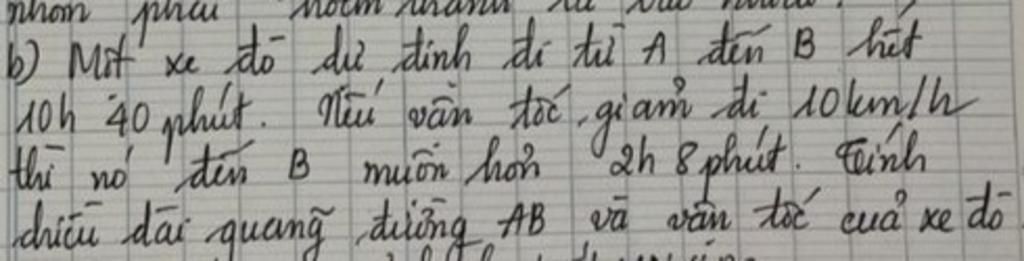 nhóm phải
b) Một xe đò dự định đi từ A đến B hết
10h 40 phút. Nếu vận tốc giảm đi 10km/h
thì nó đến B muộn hơn 2h 8 phút. Tính
chiều dài quãng đường AB và vận tốc của xe đò